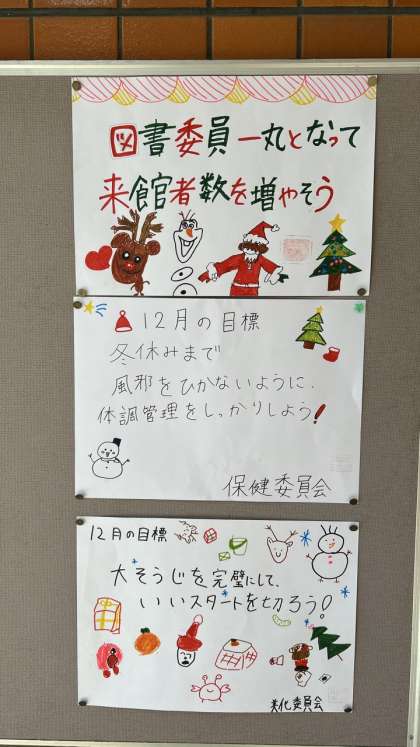 図書委員一丸となって
来館者数を増やそう
12月の目標
冬休みまで
風邪をひかないように、
体調管理をしっかりしよう!
保健委員会
12月の目標
大そうじを完璧にして、
いいスタートを切ろう!
美化委員会